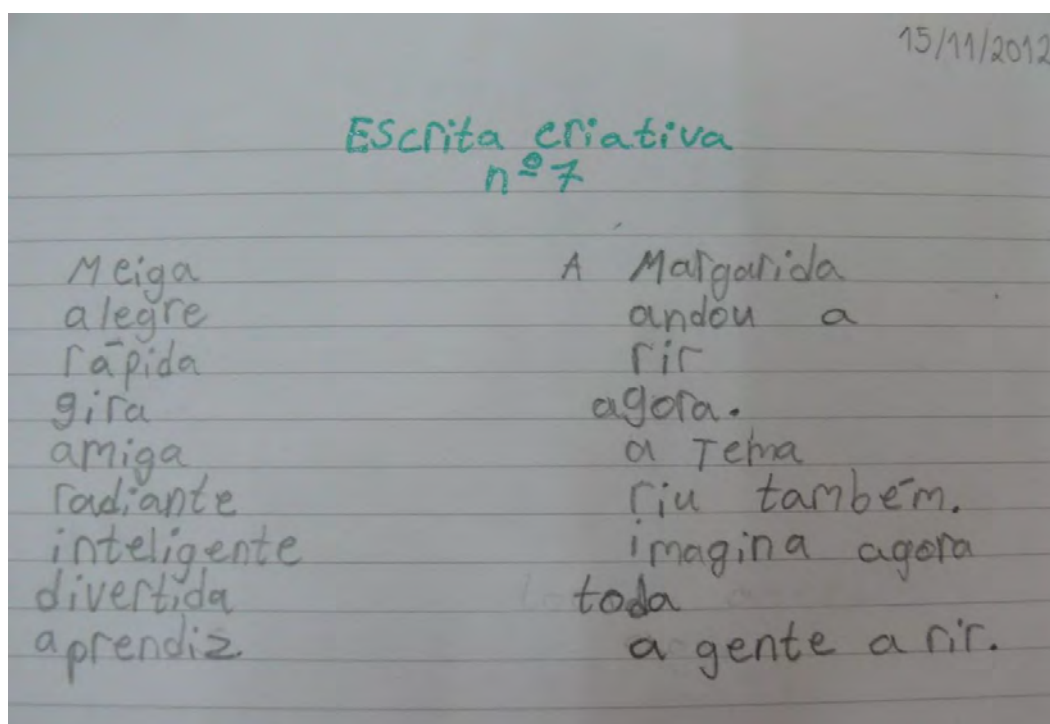 15/11/2012
Escrita criativa
nº7
Meiga
alegre
rápida
gira
amiga
radiante
inteligente
divertida
aprendiz.
A Margarida
andou a
rir
agora.
a Tema
riu também.
imagina agora
toda
a gente a rir.